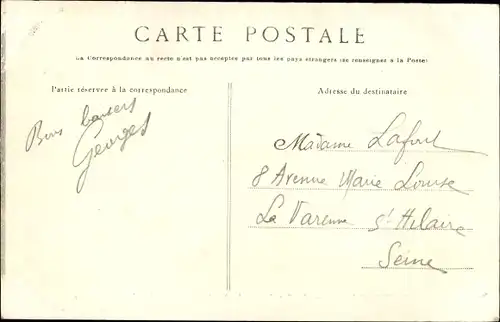 CARTE POSTALE
La Correspondance au recto n'est pas acceptée par tous les pays étrangers (se renseigner à la Poste)
Partie réservée à la correspondance
Adresse du destinataire
Bons baisers
Georges
Madame Lafont
8 Avenue Marie Louise
La Varenne St Hilaire
Seine